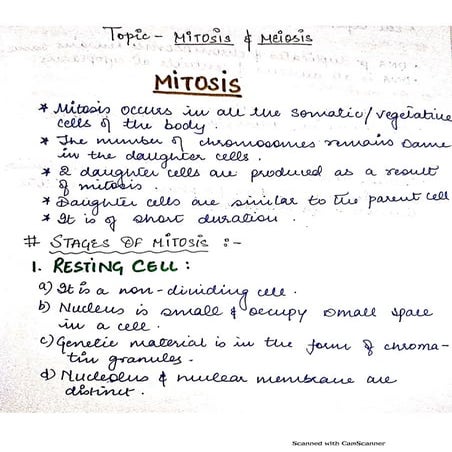 Topic - MITOSIS & MEIOSIS
MITOSIS
* Mitosis occurs in all the somatic/vegetative
cells of the body.
* The number of chromosomes remains same
in the daughter cells.
* 2 daughter cells are produced as a result
of mitosis.
* Daughter cells are similar to the parent cell
* It is of short duration.
# STAGES OF MITOSIS :-
1. RESTING CELL :
a) It is a non-dividing cell.
b) Nucleus is small & occupy small space
in a cell.
c) Genetic material is in the form of chroma-
tin granules.
d) Nucleolus & nuclear membrane are
distinct.
Scanned with CamScanner